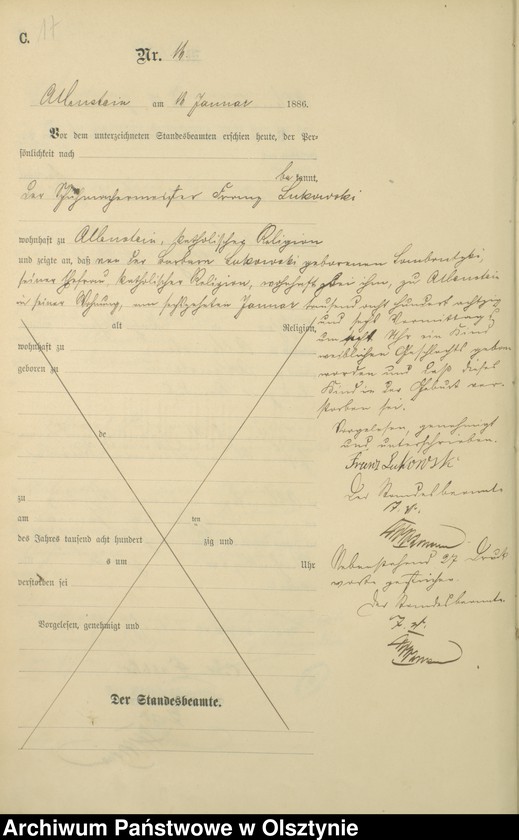 C. 17
Nr. 16
Allenstein am 16 Januar 1886.
Vor dem unterzeichneten Standesbeamten erschien heute, der Per-
sönlichkeit nach
be kannt,
der Schuhmachermeister Franz Lukowski
wohnhaft zu Allenstein, katholischer Religion
und zeigte an, daß von der Barbara Lukowski geborenen
seiner Ehefrau katholischer Religion, wohnhaft bei ihm, zu Allenstein
in seiner Wohnung, am sechszehnten Januar tausend acht hundert achtzig
und sechs Vormittags
um acht Uhr ein Kind
weiblichen Geschlechts geboren
worden und daß dieses
Kind in der Geburt ver-
storben sei.
Vorgelesen, genehmigt
und unterschrieben.
Franz Lukowski
Der Standesbeamte
Nebenstehend 27 Druck
worte gestrichen.
Der Standesbeamte
alt Religion,
wohnhaft zu
geboren zu
de
zu
am ten
des Jahres tausend acht hundert zig und
s um Uhr
verstorben sei
Vorgelesen, genehmigt und
Der Standesbeamte.
Archiwum Państwowe w Olsztynie